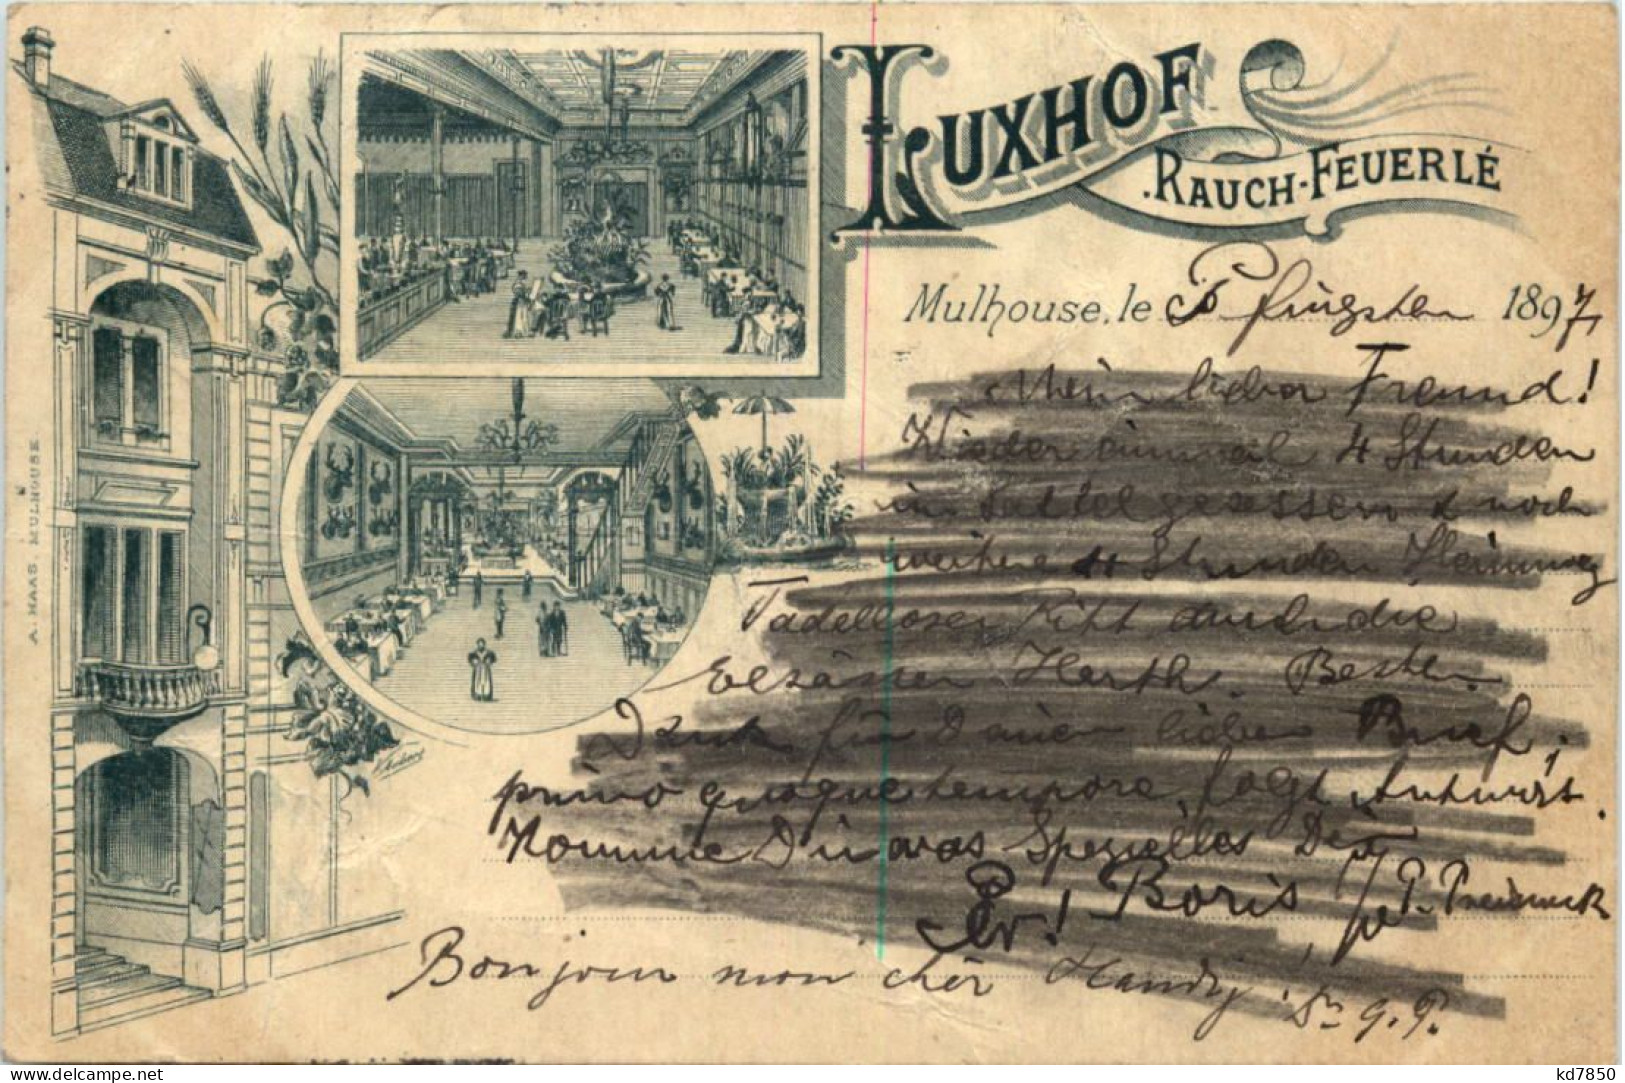 LUXHOF
RAUCH-FEUERLÉ
Mulhouse, le Pfingsten 1897
Mein lieber Freund!
Wieder einmal 4 Stunden
im Sattel gesessen & noch
weitere 4 Stunden Heimweg
Tadelloser Ritt durch die
Elsässer Harth. Besten
Dank für Deinen lieben Brief,
primo quoque tempore folgt Antwort.
Komme Du was Spezielles Dein
Boris
Bonjour mon cher Handy!
G. P.
A. HAAS. MULHOUSE.
kd7850